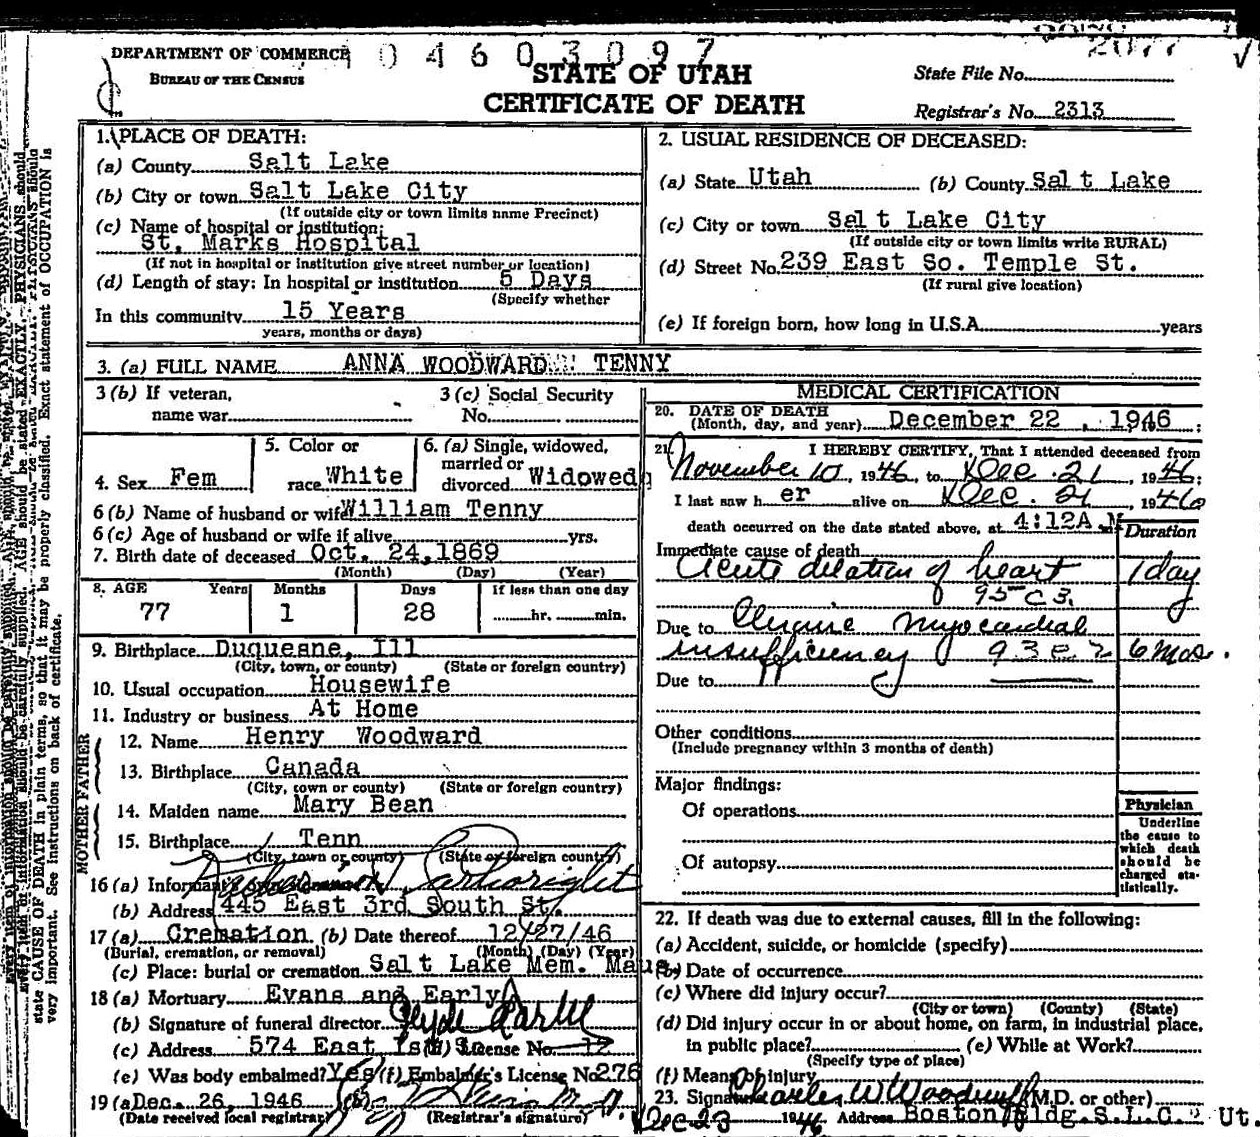 DEPARTMENT OF COMMERCE
BUREAU OF THE CENSUS
04603097
2077
STATE OF UTAH
CERTIFICATE OF DEATH
State File No.
Registrar's No. 2313
1. PLACE OF DEATH:
(a) County Salt Lake
(b) City or town Salt Lake City
(If outside city or town limits name Precinct)
(c) Name of hospital or institution:
St. Marks Hospital
(If not in hospital or institution give street number or location)
(d) Length of stay: In hospital or institution 5 Days
(Specify whether
In this community 15 Years
years, months or days)
2. USUAL RESIDENCE OF DECEASED:
(a) State Utah (b) County Salt Lake
(c) City or town Salt Lake City
(If outside city or town limits write RURAL)
(d) Street No. 239 East So. Temple St.
(If rural give location)
(e) If foreign born, how long in U.S.A. years
3. (a) FULL NAME ANNA WOODWARD TENNY
3 (b) If veteran,
name war
3 (c) Social Security
No.
4. Sex Fem
5. Color or
race White
6. (a) Single, widowed,
married or
divorced Widowed
6 (b) Name of husband or wife William Tenny
6 (c) Age of husband or wife if alive yrs.
7. Birth date of deceased Oct. 24, 1869
(Month) (Day) (Year)
8. AGE Years Months Days If less than one day
77 1 28 hr. min.
9. Birthplace Duquesne, Ill
(City, town, or county) (State or foreign country)
10. Usual occupation Housewife
11. Industry or business At Home
FATHER
12. Name Henry Woodward
13. Birthplace Canada
(City, town or county) (State or foreign country)
MOTHER
14. Maiden name Mary Bean
15. Birthplace Tenn
(City, town or county) (State or foreign country)
16 (a) Informant's own signature
(b) Address 445 East 3rd South St.
17 (a) Cremation (b) Date thereof 12/27/46
(Burial, cremation, or removal) (Month) (Day) (Year)
(c) Place: burial or cremation Salt Lake Mem. Maus.
18 (a) Mortuary Evans and Early
(b) Signature of funeral director Clyde Earle
(c) Address 574 East 1st So (d) License No. 12
(e) Was body embalmed? Yes (f) Embalmer's License No 276
19 (a Dec. 26, 1946
(Date received local registrar) (Registrar's signature)
MEDICAL CERTIFICATION
20. DATE OF DEATH
(Month, day, and year) December 22, 1946;
21. I HEREBY CERTIFY, That I attended deceased from
November 10, 1946, to Dec. 21, 1946;
I last saw h er alive on Dec. 21, 1946
death occurred on the date stated above, at 4:12A.M
Duration
Immediate cause of death
Acute dilation of heart 1 day
95 C 3.
Due to Chronic myocardial
insufficiency 93 e 2 6 Mos.
Due to
Other conditions
(Include pregnancy within 3 months of death)
Major findings:
Of operations
Of autopsy
Physician
Underline
the cause to
which death
should be
charged sta-
tistically.
22. If death was due to external causes, fill in the following:
(a) Accident, suicide, or homicide (specify)
(b) Date of occurrence
(c) Where did injury occur?
(City or town) (County) (State)
(d) Did injury occur in or about home, on farm, in industrial place,
in public place? (e) While at Work?
(Specify type of place)
(f) Means of injury
23. Signature Charles W Woodruff (M.D. or other)
Dec 23 1946 Address Boston Bldg. S.L.C. 2 Ut
state CAUSE OF DEATH in plain terms, so that it may be properly classified. Exact statement of OCCUPATION is
very important. See instructions on back of certificate.